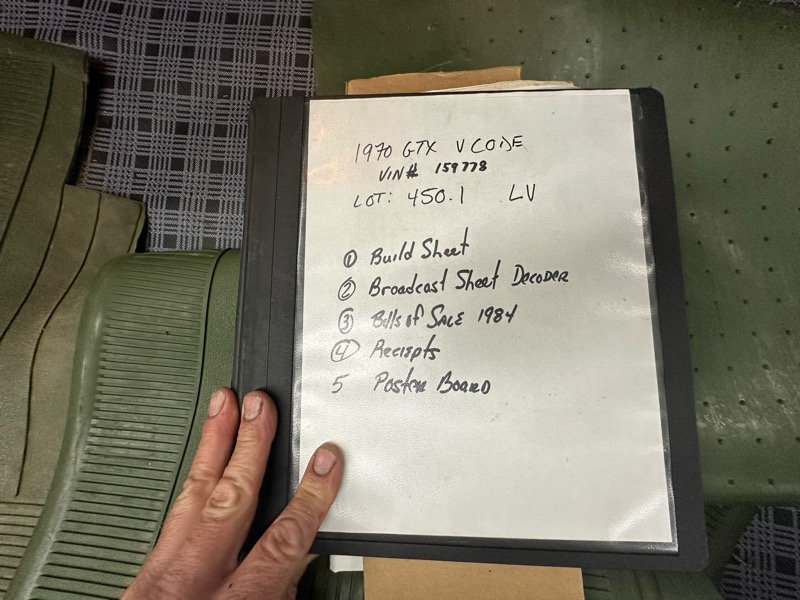 1970 GTX V CODE
VIN# 159778
LOT: 450.1 LV
① Build Sheet
② Broadcast Sheet Decoder
③ Bills of Sale 1984
④ Reciepts
5 Poster Board